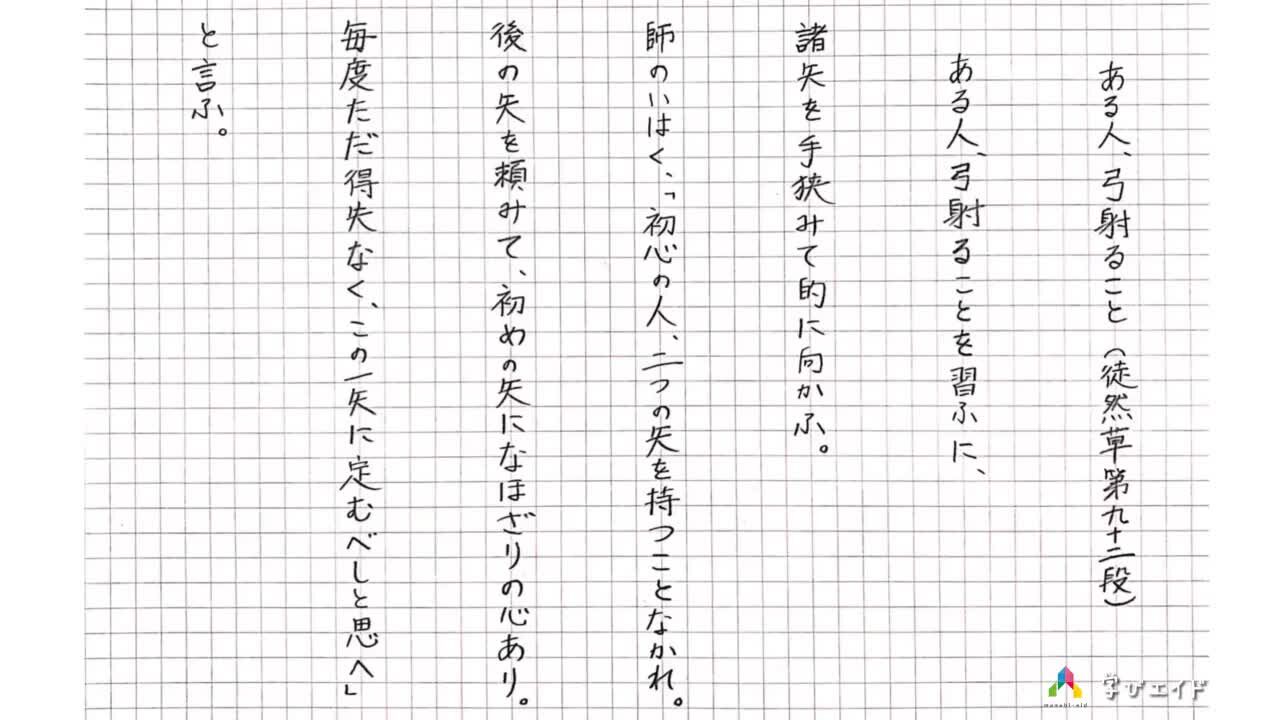 ある人、弓射ること（徒然草第九十二段）
ある人、弓射ることを習ふに、
諸矢を手挟みて的に向かふ。
師のいはく、「初心の人、二つの矢を持つことなかれ。
後の矢を頼みて、初めの矢になほざりの心あり。
毎度ただ得失なく、この一矢に定むべしと思へ」
と言ふ。
manabi-aid
学びエイド